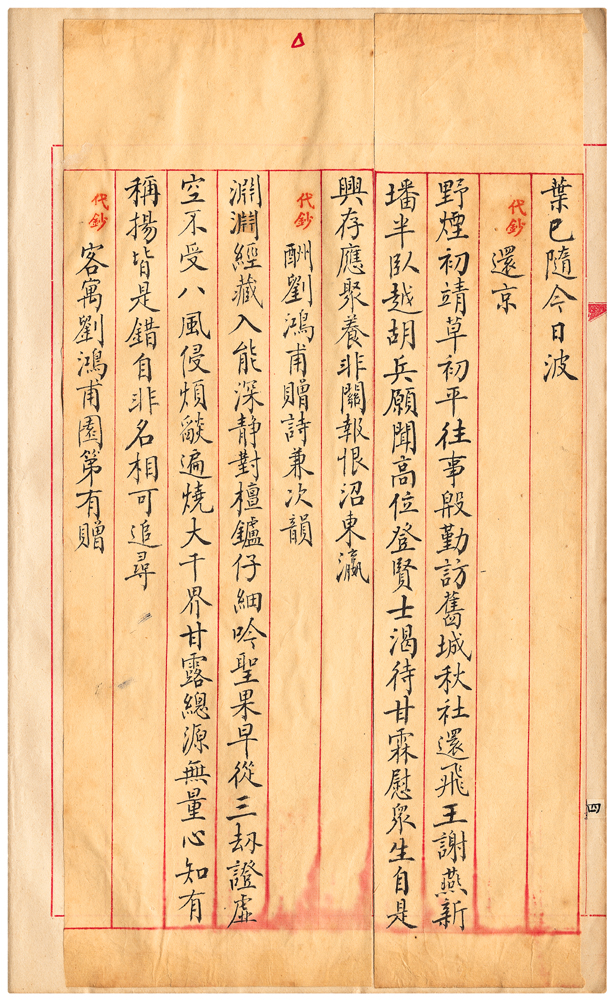 葉已隨今日波
代鈔
還京
野煙初靖草初平往事殷勤訪舊城秋社還飛王謝燕新
墦半臥越胡兵願聞高位登賢士渴待甘霖慰眾生自是
興存應聚養非關報恨沼東瀛
代鈔
酬劉鴻甫贈詩兼次韻
淵淵經藏入能深靜對檀鑪仔細吟聖果早從三劫證虛
空不受八風侵煩燄遍燒大千界甘露總源無量心知有
稱揚皆是錯自非名相可追尋
代鈔
客寓劉鴻甫園第有贈
四